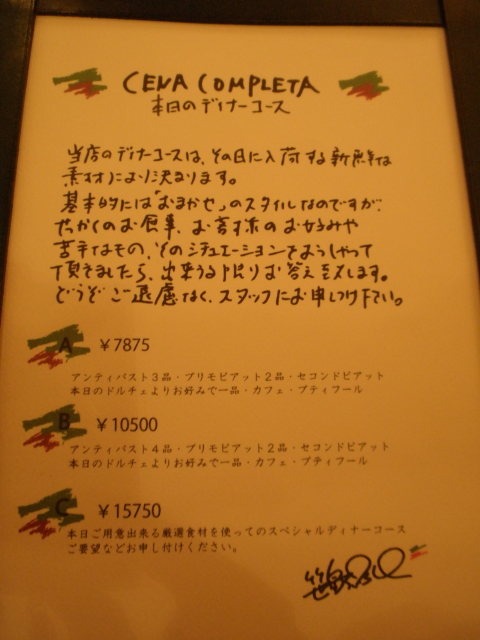 CENA COMPLETA
本日のディナーコース
当店のディナーコースは、その日に入荷する新鮮な
素材により決まります。
基本的には「おまかせ」のスタイルなのですが、
せっかくのお食事、お客様のお好みや
苦手なもの、そのシチュエーションをおっしゃって
頂きましたら、出来うる限りお答え致します。
どうぞご遠慮なく、スタッフにお申しつけ下さい。
A ¥7875
アンティパスト3品・プリモピアット2品・セコンドピアット
本日のドルチェよりお好みで一品・カフェ・プティフール
B ¥10500
アンティパスト4品・プリモピアット2品・セコンドピアット
本日のドルチェよりお好みで一品・カフェ・プティフール
C ¥15750
本日ご用意出来る厳選食材を使ってのスペシャルディナーコース
ご要望などお申し付けください。